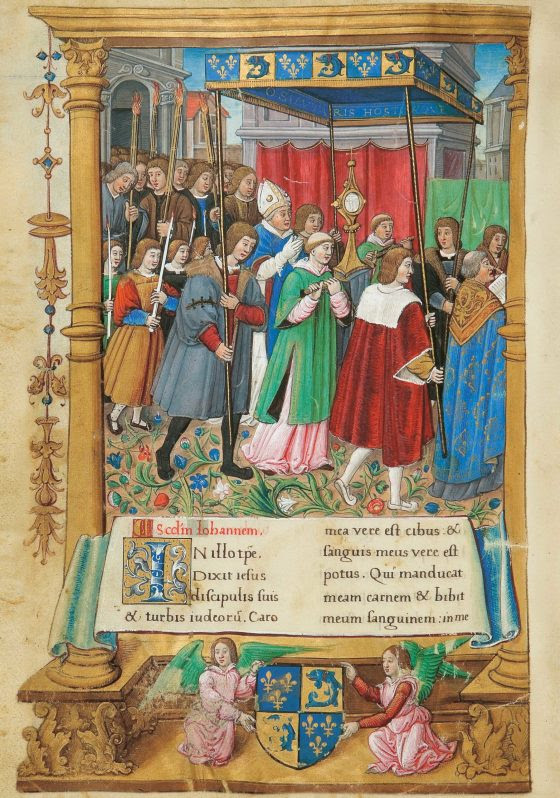 TARIS HOSTIA
Scdm Iohannem.
IN illo tpe.
Dixit iesus
discipulis suis
& turbis iudeorũ. Caro
mea vere est cibus: &
sanguis meus vere est
potus. Qui manducat
meam carnem & bibit
meum sanguinem: in me